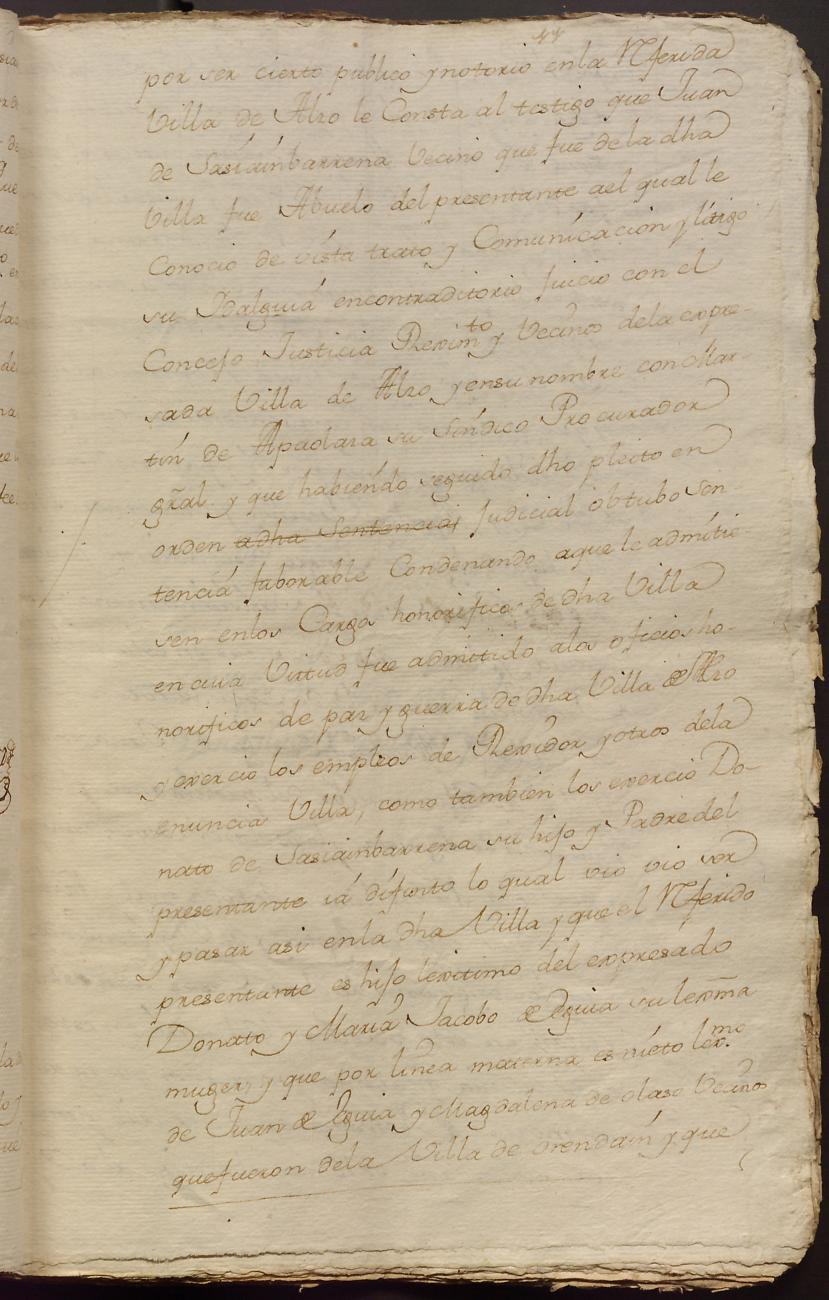 por ser cierto publico y notorio en la Rferida
Villa de Alzo le Consta al testigo que Juan
de Sasiainbarrena Vecino que fue de la dha
Villa fue Abuelo del presentante a el qual le
Conocio de vista trato y Comunicacion y litigo
su Idalguia en contraditorio Juicio con el
Concejo Justicia Reximto y Vecinos de la expre-
sada Villa de Alzo y en su nombre con Mar-
tin de Apaolaza su Sindico Procurador
gral y que habiendo seguido dho pleito en
orden adha Sentencia Judicial obtubo Sen
tencia faborable Condenando a que le admitie-
sen en los Cargos honorificos de dha Villa
en cuia Virtud fue admitido a los oficios ho-
norificos de paz y guerra de dha Villa de Alzo
y exercio los empleos de Rexidor y otros de la
enuncia Villa, como tambien los exercio Do-
nato de Sasiainbarrena su hijo y Padre del
presentante iá difunto lo qual vio vio ser
y pasar asi en la dha Villa y que el Rferido
presentante es hijo lexitimo del expresado
Donato y Maria Jacobo de Eguia su lexma
muger, y que por linea materna es nieto lexmo
de Juan de Eguia y Magdalena de olaso Vecinos
que fueron de la Villa de orendain y que